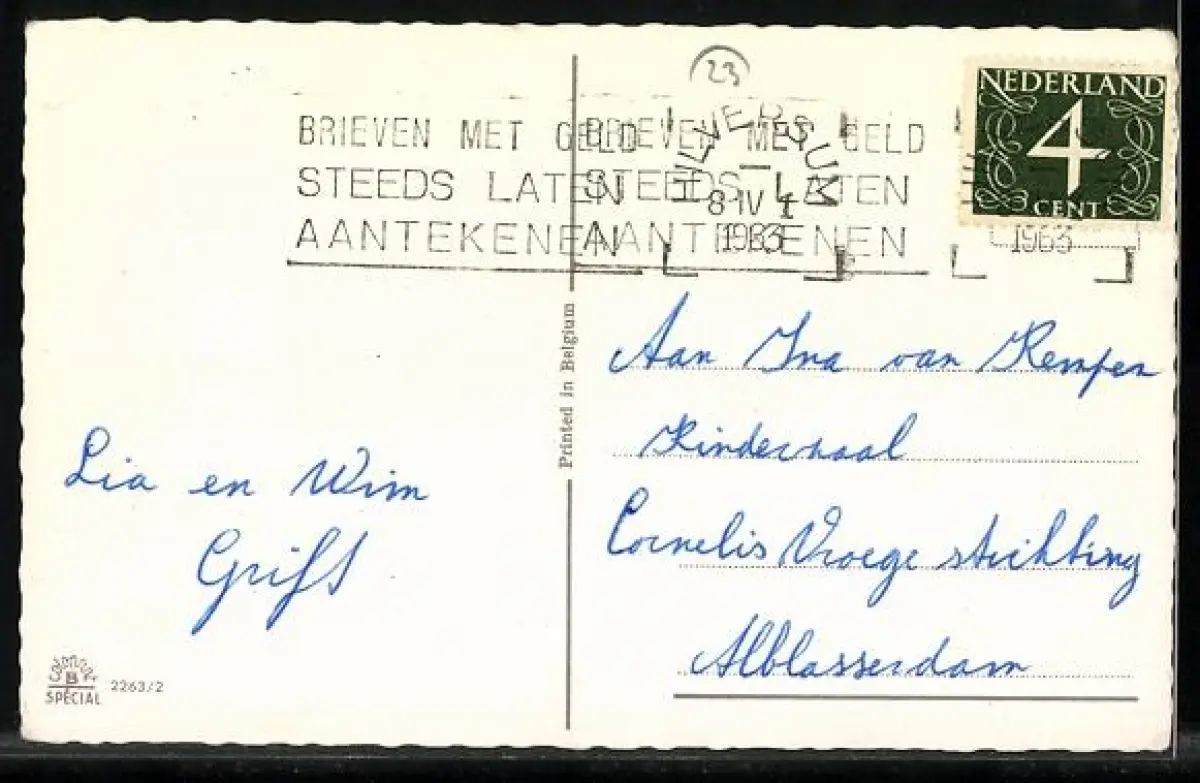 23
NEDERLAND
4
CENT
BRIEVEN MET GELD BRIEVEN MET GELD
STEEDS LATEN STEEDS LATEN
AANTEKENEN AANTEKENEN
HILVERSUM
8 IV
1963
1963
Printed in Belgium
Aan Ina van Kempen
Kinderzaal
Cornelis Vroege stichting
Alblasserdam
Lia en Wim
Grift
colorprint
B
SPÉCIAL 2263/2